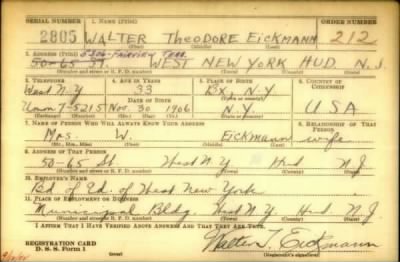 SERIAL NUMBER 1. NAME (Print) ORDER NUMBER
2805 WALTER THEODORE EICKMANN 212
(First) (Middle) (Last)
2. ADDRESS (Print)
50-65 ST. WEST NEW YORK HUD N.J.
(Number and street or R. F. D. number) (Town) (County) (State)
3. TELEPHONE 4. AGE IN YEARS 5. PLACE OF BIRTH 6. COUNTRY OF CITIZENSHIP
West N.Y 33 Bx, N.Y
DATE OF BIRTH (Town or county)
Union 7-5215 Nov. 30 1906 N.Y. USA
(Exchange) (Number) (Mo.) (Day) (Yr.) (State or country)
7. NAME OF PERSON WHO WILL ALWAYS KNOW YOUR ADDRESS 8. RELATIONSHIP OF THAT PERSON
Mrs. W. Eickmann wife
(Mr., Mrs., Miss) (First) (Middle) (Last)
9. ADDRESS OF THAT PERSON
50-65 St. West N.Y Hud N.J
(Number and street or R. F. D. number) (Town) (County) (State)
10. EMPLOYER'S NAME
Bd. of Ed. of West New York
11. PLACE OF EMPLOYMENT OR BUSINESS
Municipal Bldg. West N.Y. Hud N.J
(Number and street or R. F. D. number) (Town) (County) (State)
I AFFIRM THAT I HAVE VERIFIED ABOVE ANSWERS AND THAT THEY ARE TRUE.
REGISTRATION CARD
D. S. S. Form 1
Walter T. Eickmann
(Registrant's signature)